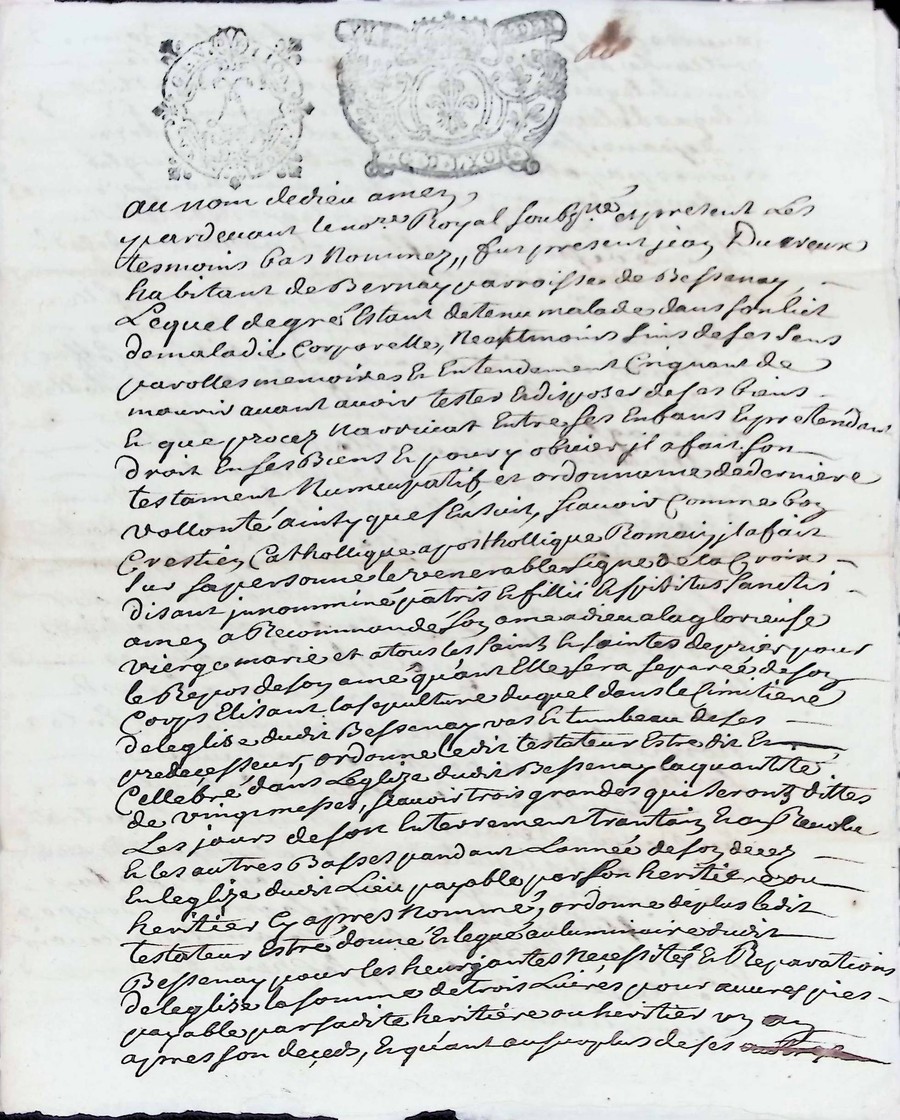 au nom de dieu amen
pardevant le no.re Royal soubz.ne et present Les
tesmoins bas Nommez,, fut present jean Ducreux
habitant de Bernay parroisse de Bessenay
Lequel de gre Estant detenu malade dans son lict
de maladie Corporelle, Neaptmoins sins de ses sens
parolles memoires Et Entendement Criquant de
mourir avant avoir tester Et disposer de ses biens
Et que procez Narrivat Entre ses Enfans Et pretendant
droit En ses Biens Et pour y obvier, jl a fait son
testament Numcupatif et ordonnance de derniere
vollonté ainsy que s'Ensuit, scavoir Comme bon
Crestien Catholliquue apostholliquue Romain, jl a fait
sur sa personne le venerable signe de la Croix
disant jn nomminé patris Et fillii Et spiritus sanctis
amen a Recommandé son ame a dieu a la glorieuse
vierge marie et a tous les saints Et saintes de prier pour
le Repos de son ame quant Elle sera separée de son
Corps Elisant la sepulture duquel dans le Cimitiere
de leglise dudit Bessenay vas Et tumbeau de ses
predecesseur, ordonne ledit testateur Estre dit Et
Cellebré dans Leglize dudit Bessenay la quantité
de vingt messes, scavoir trois grandes qui seront dittes
Les jours de son Enterrement trantain Et au Revolu
Et les autres Basses pandant Lannée de son decez
En leglize dudit Lieu payable par son heritiere ou
heritier Cy apres Nommé, ordonne de plus ledit
testateur Estre donné Et legué au luminaire dudit
Bessenay pour les heurjantes Necessités Et Reparations
de leglize la somme de trois Livres pour auvres pies
payable par sadite heritiere ou heritier un an
apres son deceds, Et quant au surplus de ses